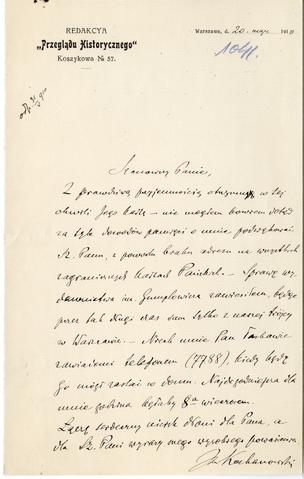 REDAKCYA
„Przeglądu Historycznego"
Koszykowa № 57.
Warszawa, d. 20 maja 191
Szanowny Panie,
Z prawdziwą przyjemnością otrzymuję w tej
chwili Jego kartkę — nie mogłem bowiem dotąd
za tyle dowodów pamięci o mnie podziękować
Sz. Panu, z powodu braku adresu na wszystkich
zagranicznych kartach Pańskich. — Sprawę wy-
dawnictwa im. Gumplowicza zawiesiłem, będąc
przez tak długi czas sam tylko z naszej trójcy
w Warszawie. — Niech mnie Pan łaskawie
zawiadomi telefonem (7788), kiedy będę
Go mógł zastać w domu. Najdogodniejszą dla
mnie godziną byłaby 8a wieczorem.
Łączę serdeczny uścisk dłoni dla Pana, a
dla Sz. Pani wyrazy mego wysokiego poważania
JK Kochanowski